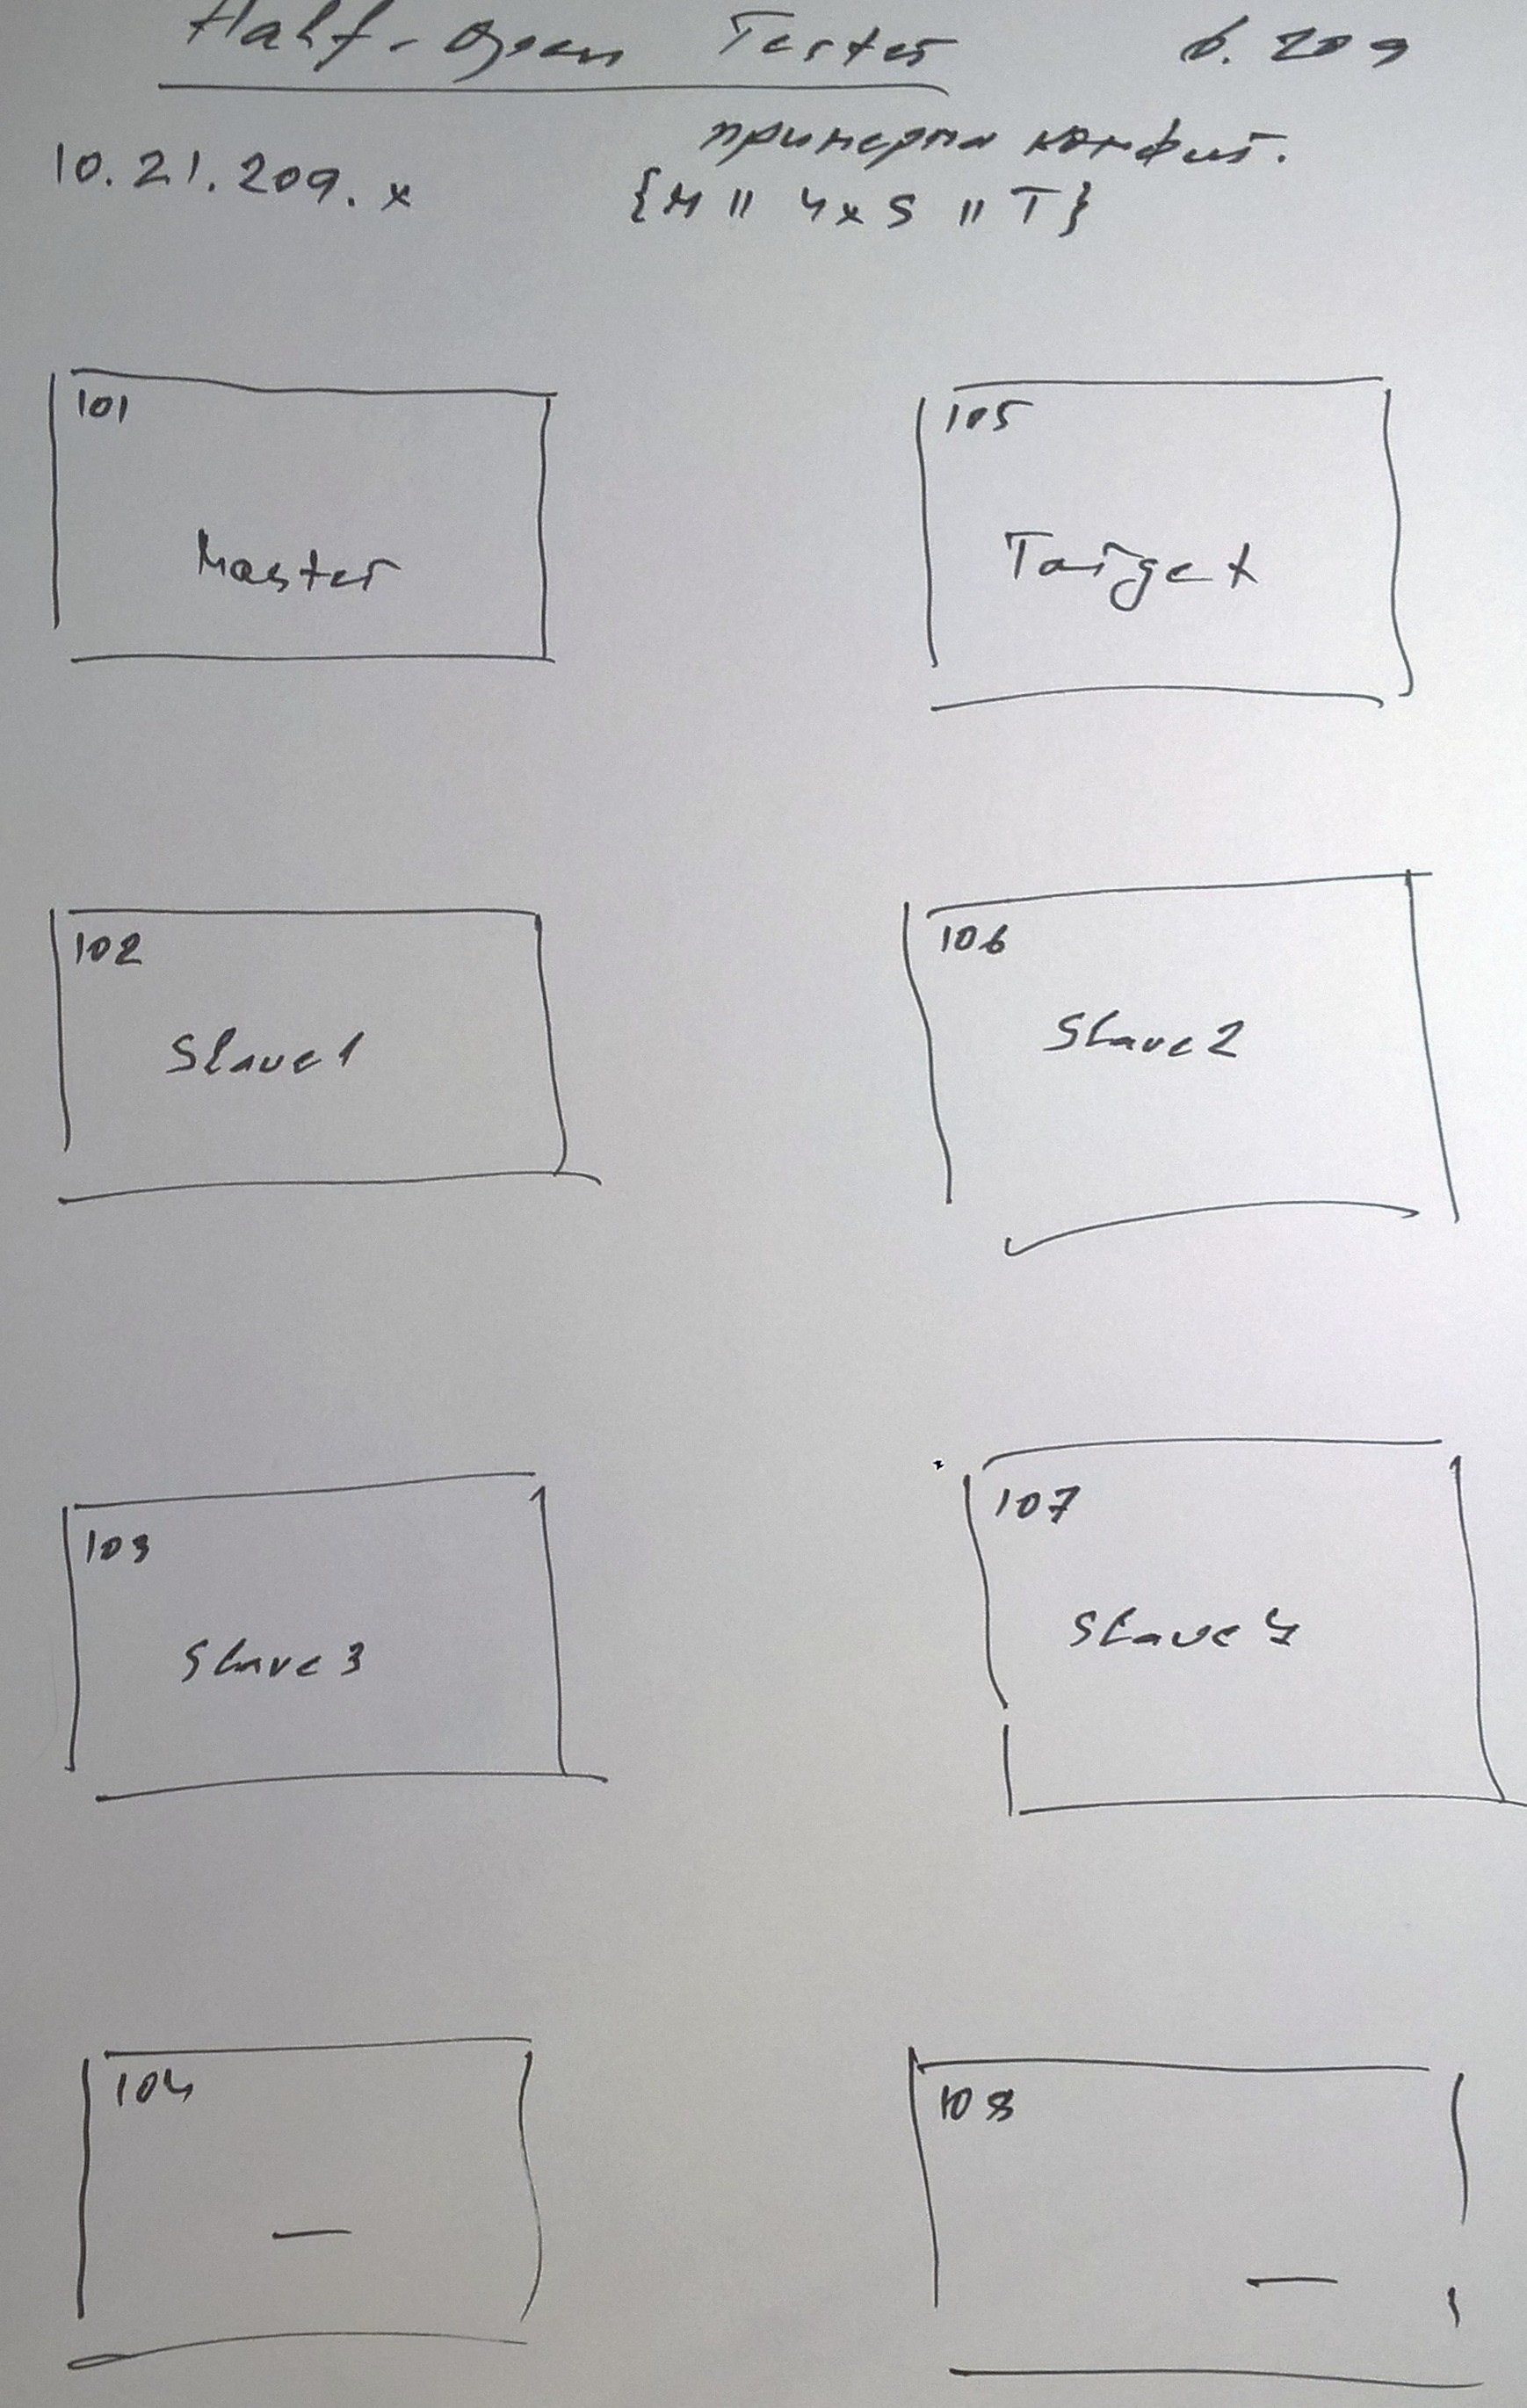 Half-open Tester б. 209
примерна конфиг.
10.21.209.x {M || 4x S || T}
101
Master
105
Target
102
Slave1
106
Slave2
103
Slave3
107
Slave4
104
—
108
—